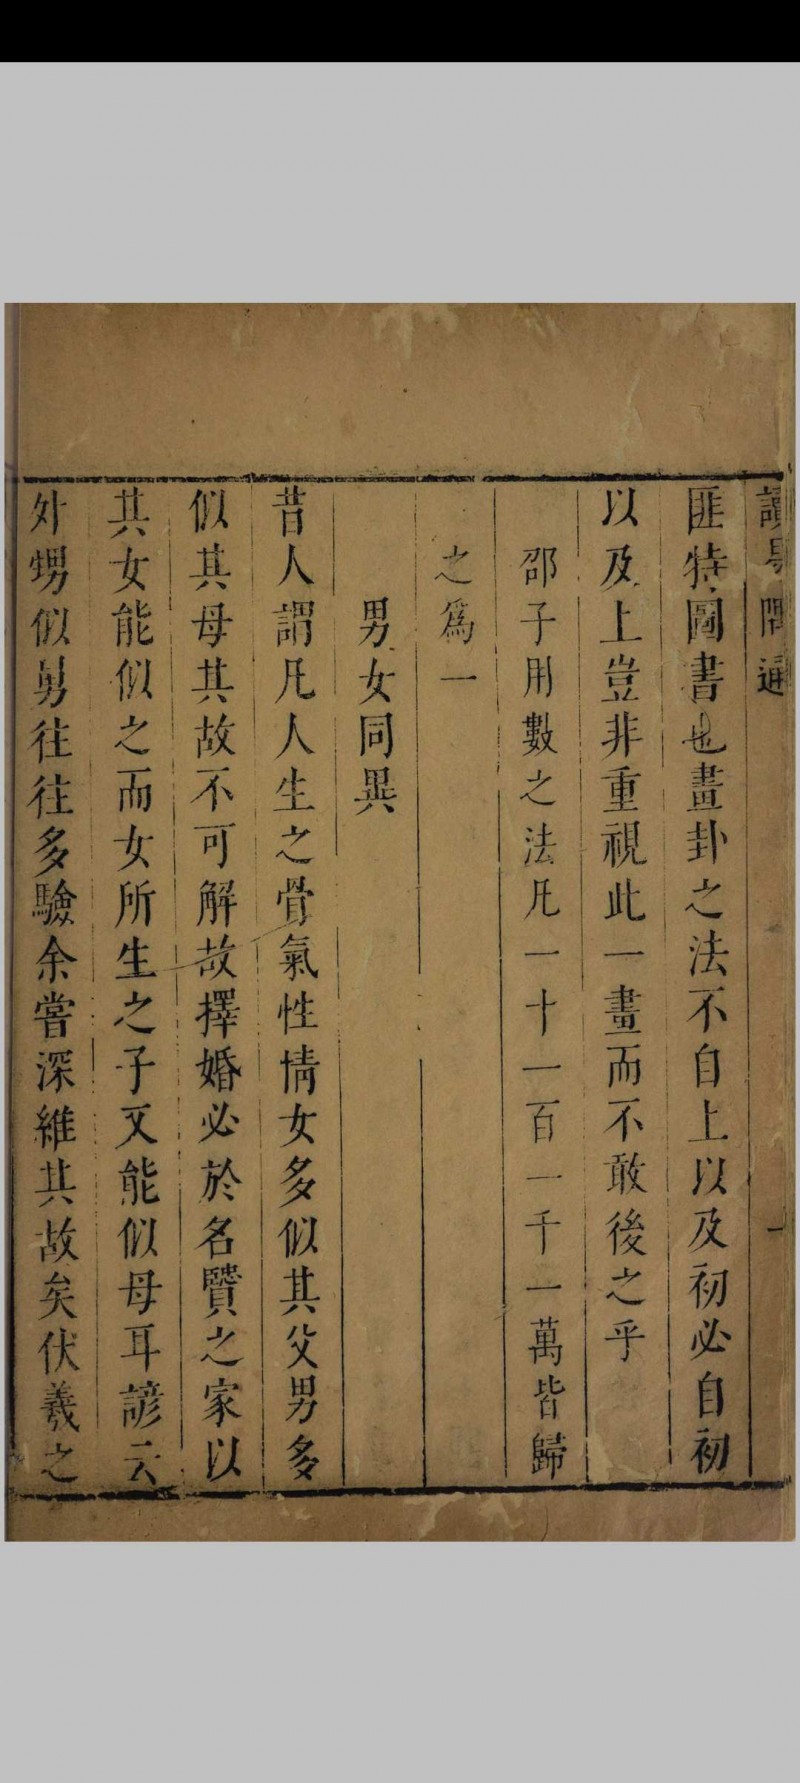 讀易隅通
一
匪特圖書也畫卦之法不自上以及初必自初
以及上豈非重視此一畫而不敢後之乎
邵子用數之法凡一十一百一千一萬皆歸
之爲一
男女同異
昔人謂凡人生之骨氣性情女多似其父男多
似其母其故不可解故擇婚必於名賢之家以
其女能似之而女所生之子又能似母耳諺云
外甥似舅往往多驗余嘗深維其故矣伏羲之